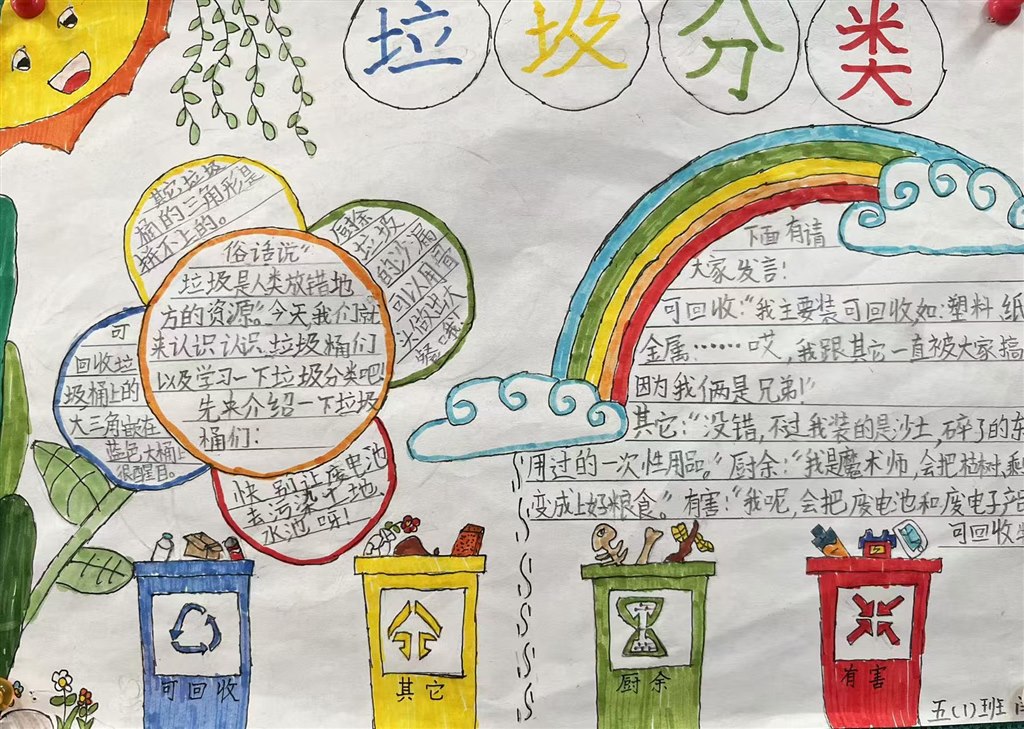 垃圾分类
其它垃圾
桶的三角形是
拼不上的。
厨余
垃圾
俗话说“
垃圾是人类放错地
方的资源”今天我们就
来认识认识垃圾桶们
以及学习一下垃圾分类吧!
先来介绍一下垃圾
桶们:
可
回收垃
圾桶上的
大三角做在
蓝色大桶上
很醒目。
快别让废电池
去污染土地、
水池呀!
下面有请
大家发言!
可回收:“我主要装可回收如:塑料 纸
金属……哎,我跟其它一直被大家搞
因为我俩是兄弟!”
其它:“没错,不过我装的是沙土,碎了的东
用过的一次性用品。”厨余:“我是魔术师,会把枯树,剩
变成上好粮食。”有害:“我呢,会把废电池和废电子产品
可回收
可回收
其它
厨余
有害
五(1)班